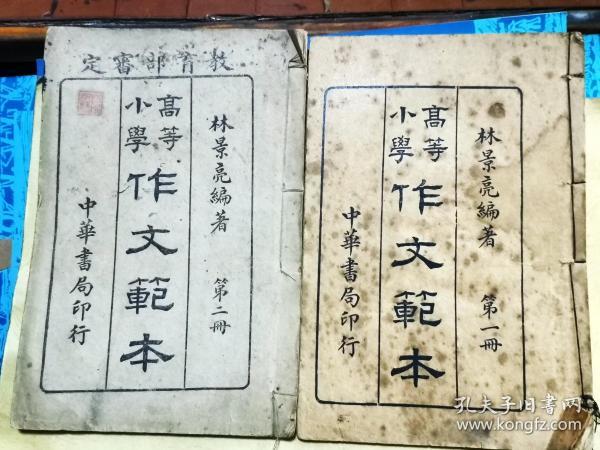 教育部審定
林景亮編著 第二冊
高等
小學
作文範本
中華書局印行
林景亮編著 第一冊
高等
小學
作文範本
中華書局印行
孔夫子旧书网
www.kongfz.com